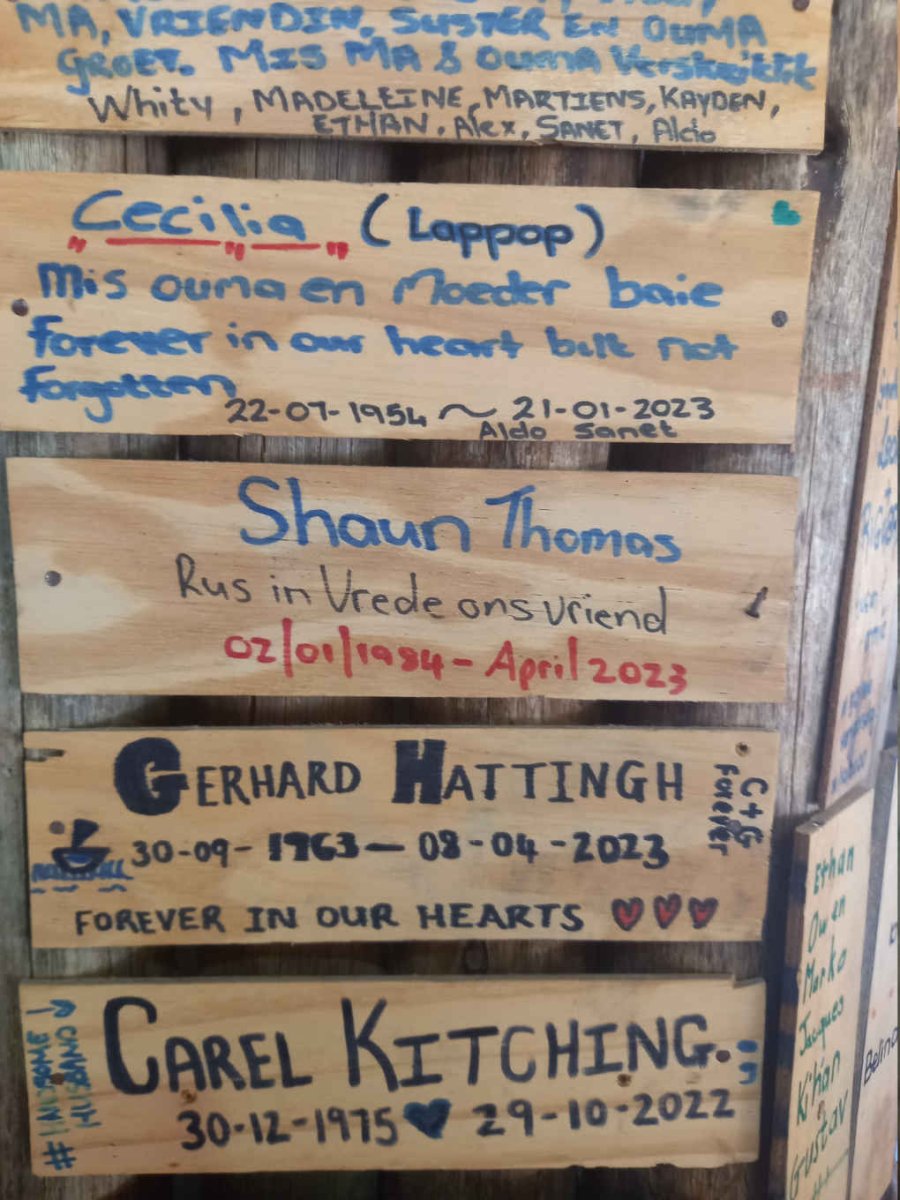 MA, VRIENDIN, SUSTER EN OUMA
GROET. MIS MA & OUMA Verskriklik
Whity, MADELEINE, MARTIENS, KAYDEN,
ETHAN, Alex, SANET, Aldo
Cecilia (Lappop)
Mis ouma en Moeder baie
forever in our heart but not
forgotten
22-07-1954 ~ 21-01-2023
Aldo Sanet
Shaun Thomas
Rus in Vrede ons vriend
02/01/1984 - April 2023
GERHARD HATTINGH
30-09-1963 — 08-04-2023
FOREVER IN OUR HEARTS
C+G
Forever
CAREL KITCHING
30-12-1975 29-10-2022
Ethan
Owen
Marko
Jacques
Kihan
Gustav
Belind